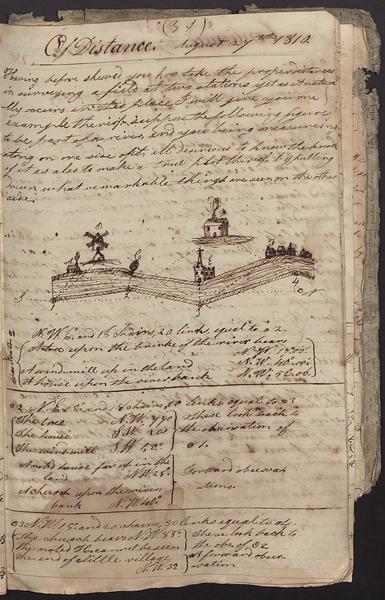 (31)
Of Distance. August 27th 1810.
Having before shewed you how take the proper distances
in surveying a field at two stations yet as it natura
lly occurs in this place I will give you one
example thereof. Suppose the following figure
to be part of a river and you being measureing
along on one side of it, and desirous to know the breadth
of it as also to make a true plot thereof by putting
down what remarkable things are seen on the other
side.
1
2
3
4
N. W. 6: and 18 Chains, 20 links equal to ⊙2.
A tree upon the brinke of the river bears
A windmill up in the land
A house upon the river bank
⊙2 N. E. and 18 chains, links equal to ⊙3
The tree N. W.
The house S. W. 20°
The windmill S. W. 52°
A noted house far up in the
land N. W. 28°
A church upon the rivers
bank N. W.
These look back to
the observation of
⊙1.
Forward observat
tions.
⊙3 N. W. 15: and 20 chains, 50 links equal to ⊙4.
The church bears N. W. 88°
the noted Ho. cannot be seen
the end of a little village
N. W. 32
These look back to
the obs. of ⊙2
a forward obser-
vation